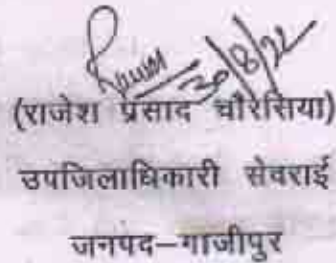 30/8/22
(राजेश प्रसाद चौरसिया)
उपजिलाधिकारी सेवराई
जनपद–गाजीपुर